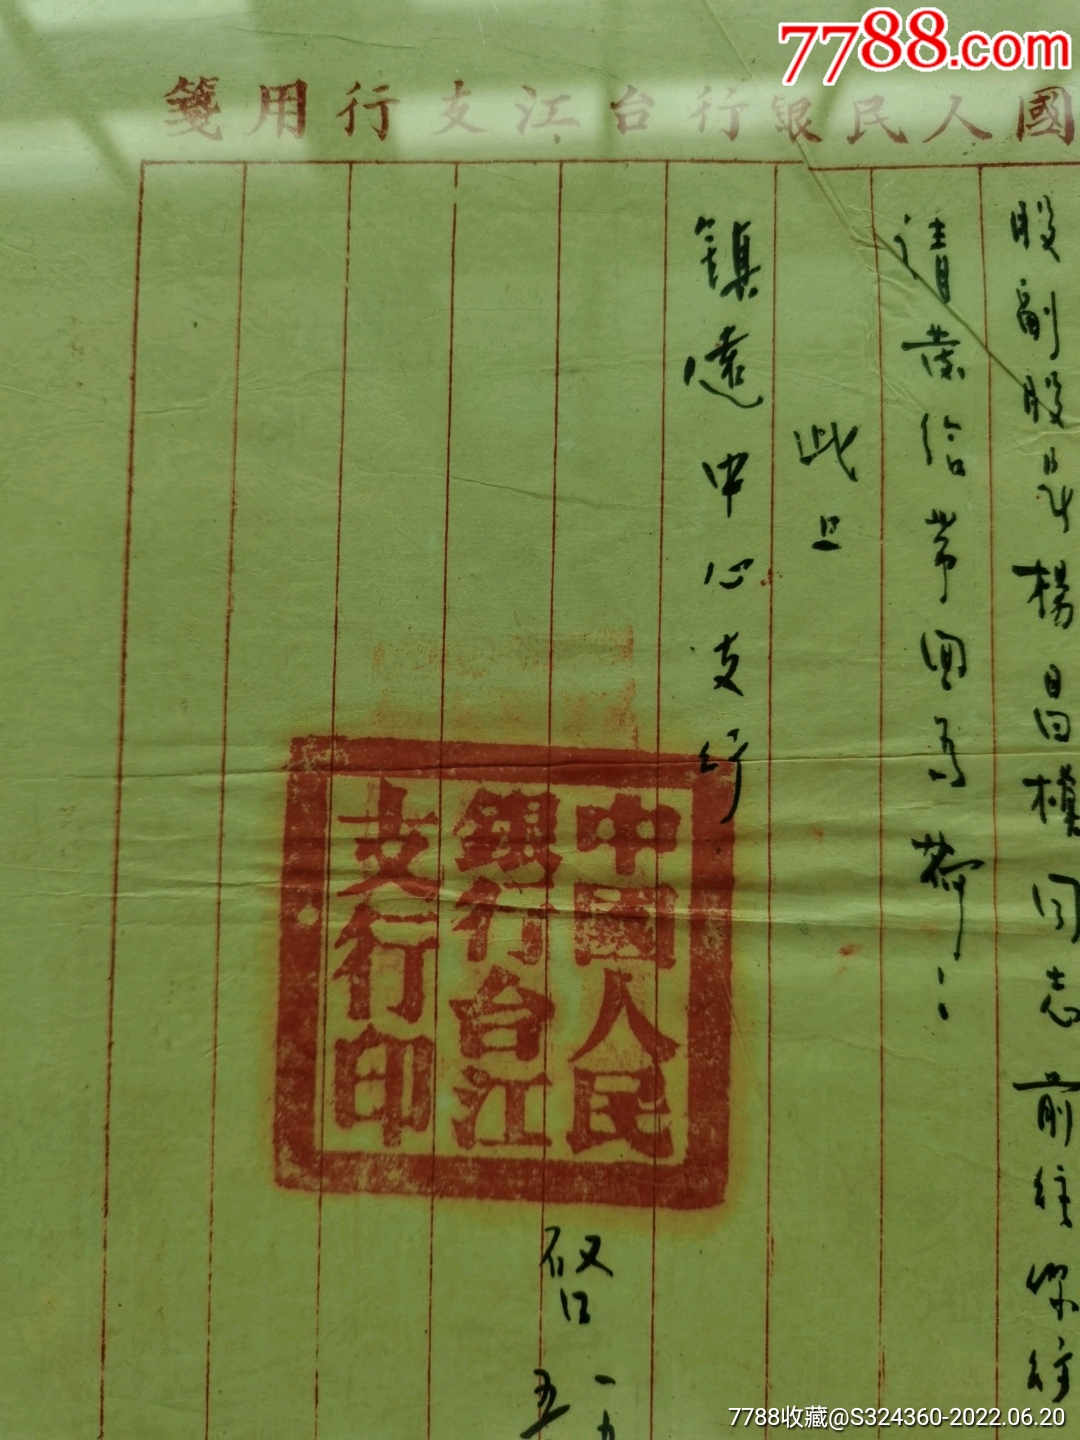 7788.com
國人民銀行台江支行用箋
股副股長楊昌模同志前往你行
請發給帶回為荷：
此上
鎮遠中心支行
中國人民
銀行台江
支行印
啓
一九
五
7788收藏@S324360-2022.06.20